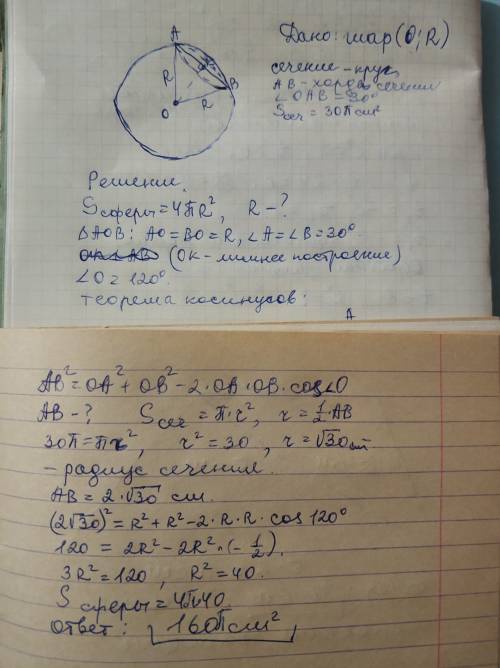 Дано: шар (O; R)
сечение – круг,
AB – хорда сечения
∠OAB = 30°
Sсеч = 30π см²
A
R
B
O
R
Решение.
Sсферы = 4πR², R – ?
△AOB: AO = BO = R, ∠A = ∠B = 30°.
OK ⊥ AB (OK – лишнее построение)
∠O = 120°.
теорема косинусов:
A
AB² = OA² + OB² – 2·OA·OB·cos∠O
AB – ? Sсеч = π·r², r = ½·AB
30π = πr², r² = 30, r = √30 см
– радиус сечения.
AB = 2·√30 см.
(2√30)² = R² + R² – 2·R·R·cos 120°
120 = 2R² – 2R²·(–½).
3R² = 120, R² = 40.
Sсферы = 4π·40
Ответ: 160π см²